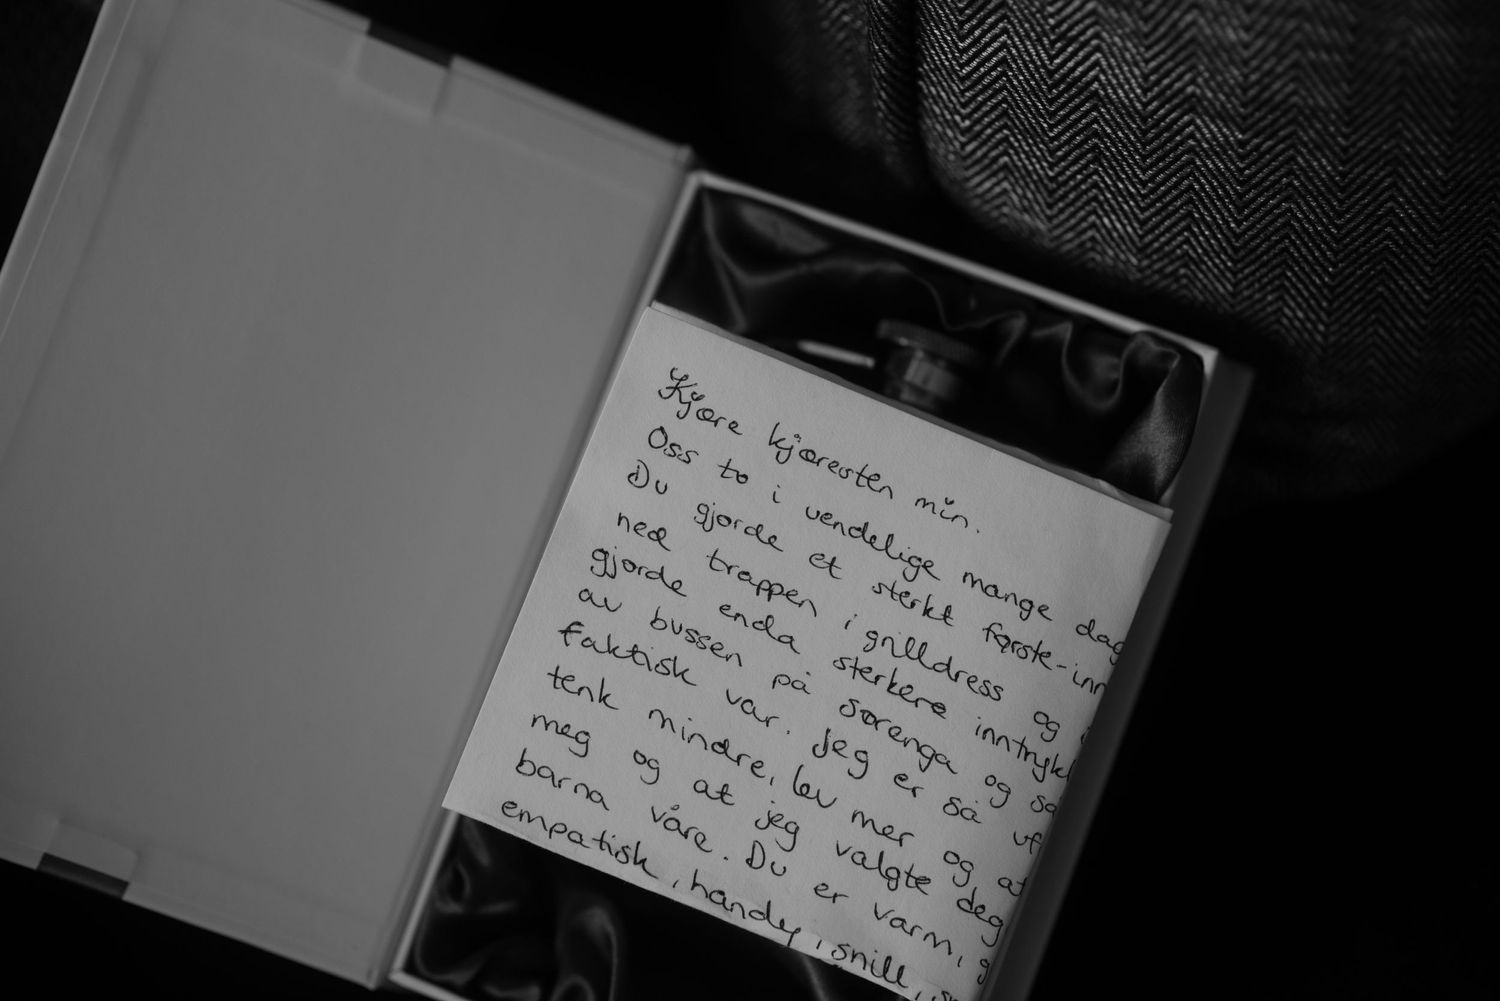 Kjære kjæresten min.
Oss to i uendelige mange dag
Du gjorde et sterkt første-inn
ned trappen i grilldress og
gjorde enda sterkere inntrykk
av bussen på Sørenga og så
faktisk var. Jeg er så uf
tenk mindre, lev mer og at
meg og at jeg valgte deg
barna våre. Du er varm, g
empatisk, handy, snill,